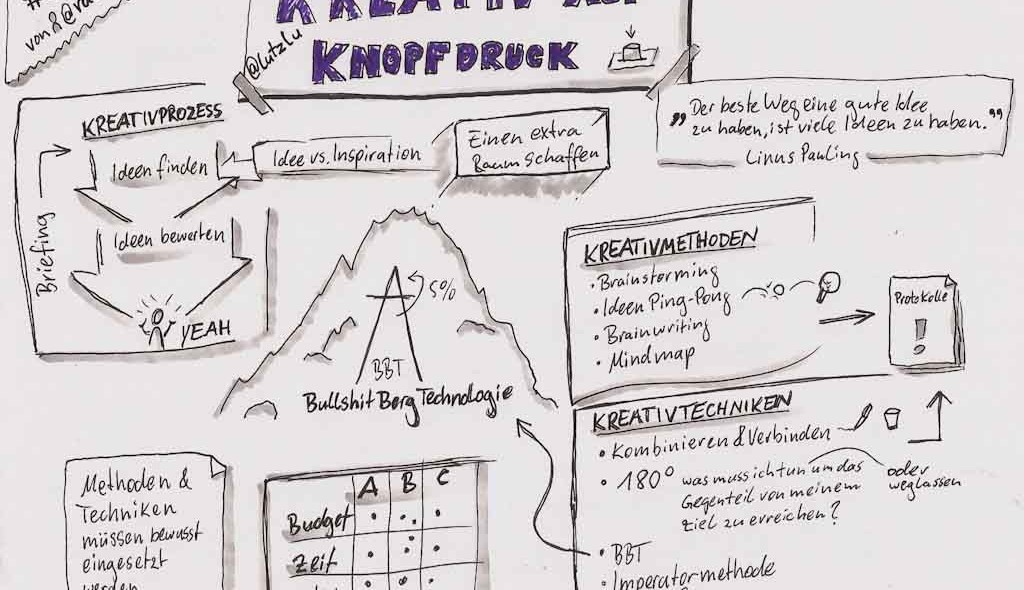 von &
KREATIV AUF
KNOPFDRUCK
@lutzlu
KREATIVPROZESS
Briefing
Ideen finden
Ideen bewerten
YEAH
Idee vs. Inspiration
Einen extra
Raum schaffen
„Der beste Weg eine gute Idee
zu haben, ist viele Ideen zu haben.”
Linus Pauling
5%
BBT
Bullshit Berg Technologie
KREATIVMETHODEN
• Brainstorming
• Ideen Ping-Pong
• Brainwriting
• Mindmap
Protokolle
!
KREATIVTECHNIKEN
• Kombinieren & Verbinden
• 180° was muss ich tun um das
Gegenteil von meinem
Ziel zu erreichen?
oder
weglassen
• BBT
• Imperatormethode
Methoden &
Techniken
müssen bewusst
eingesetzt
werden
A B C
Budget
Zeit